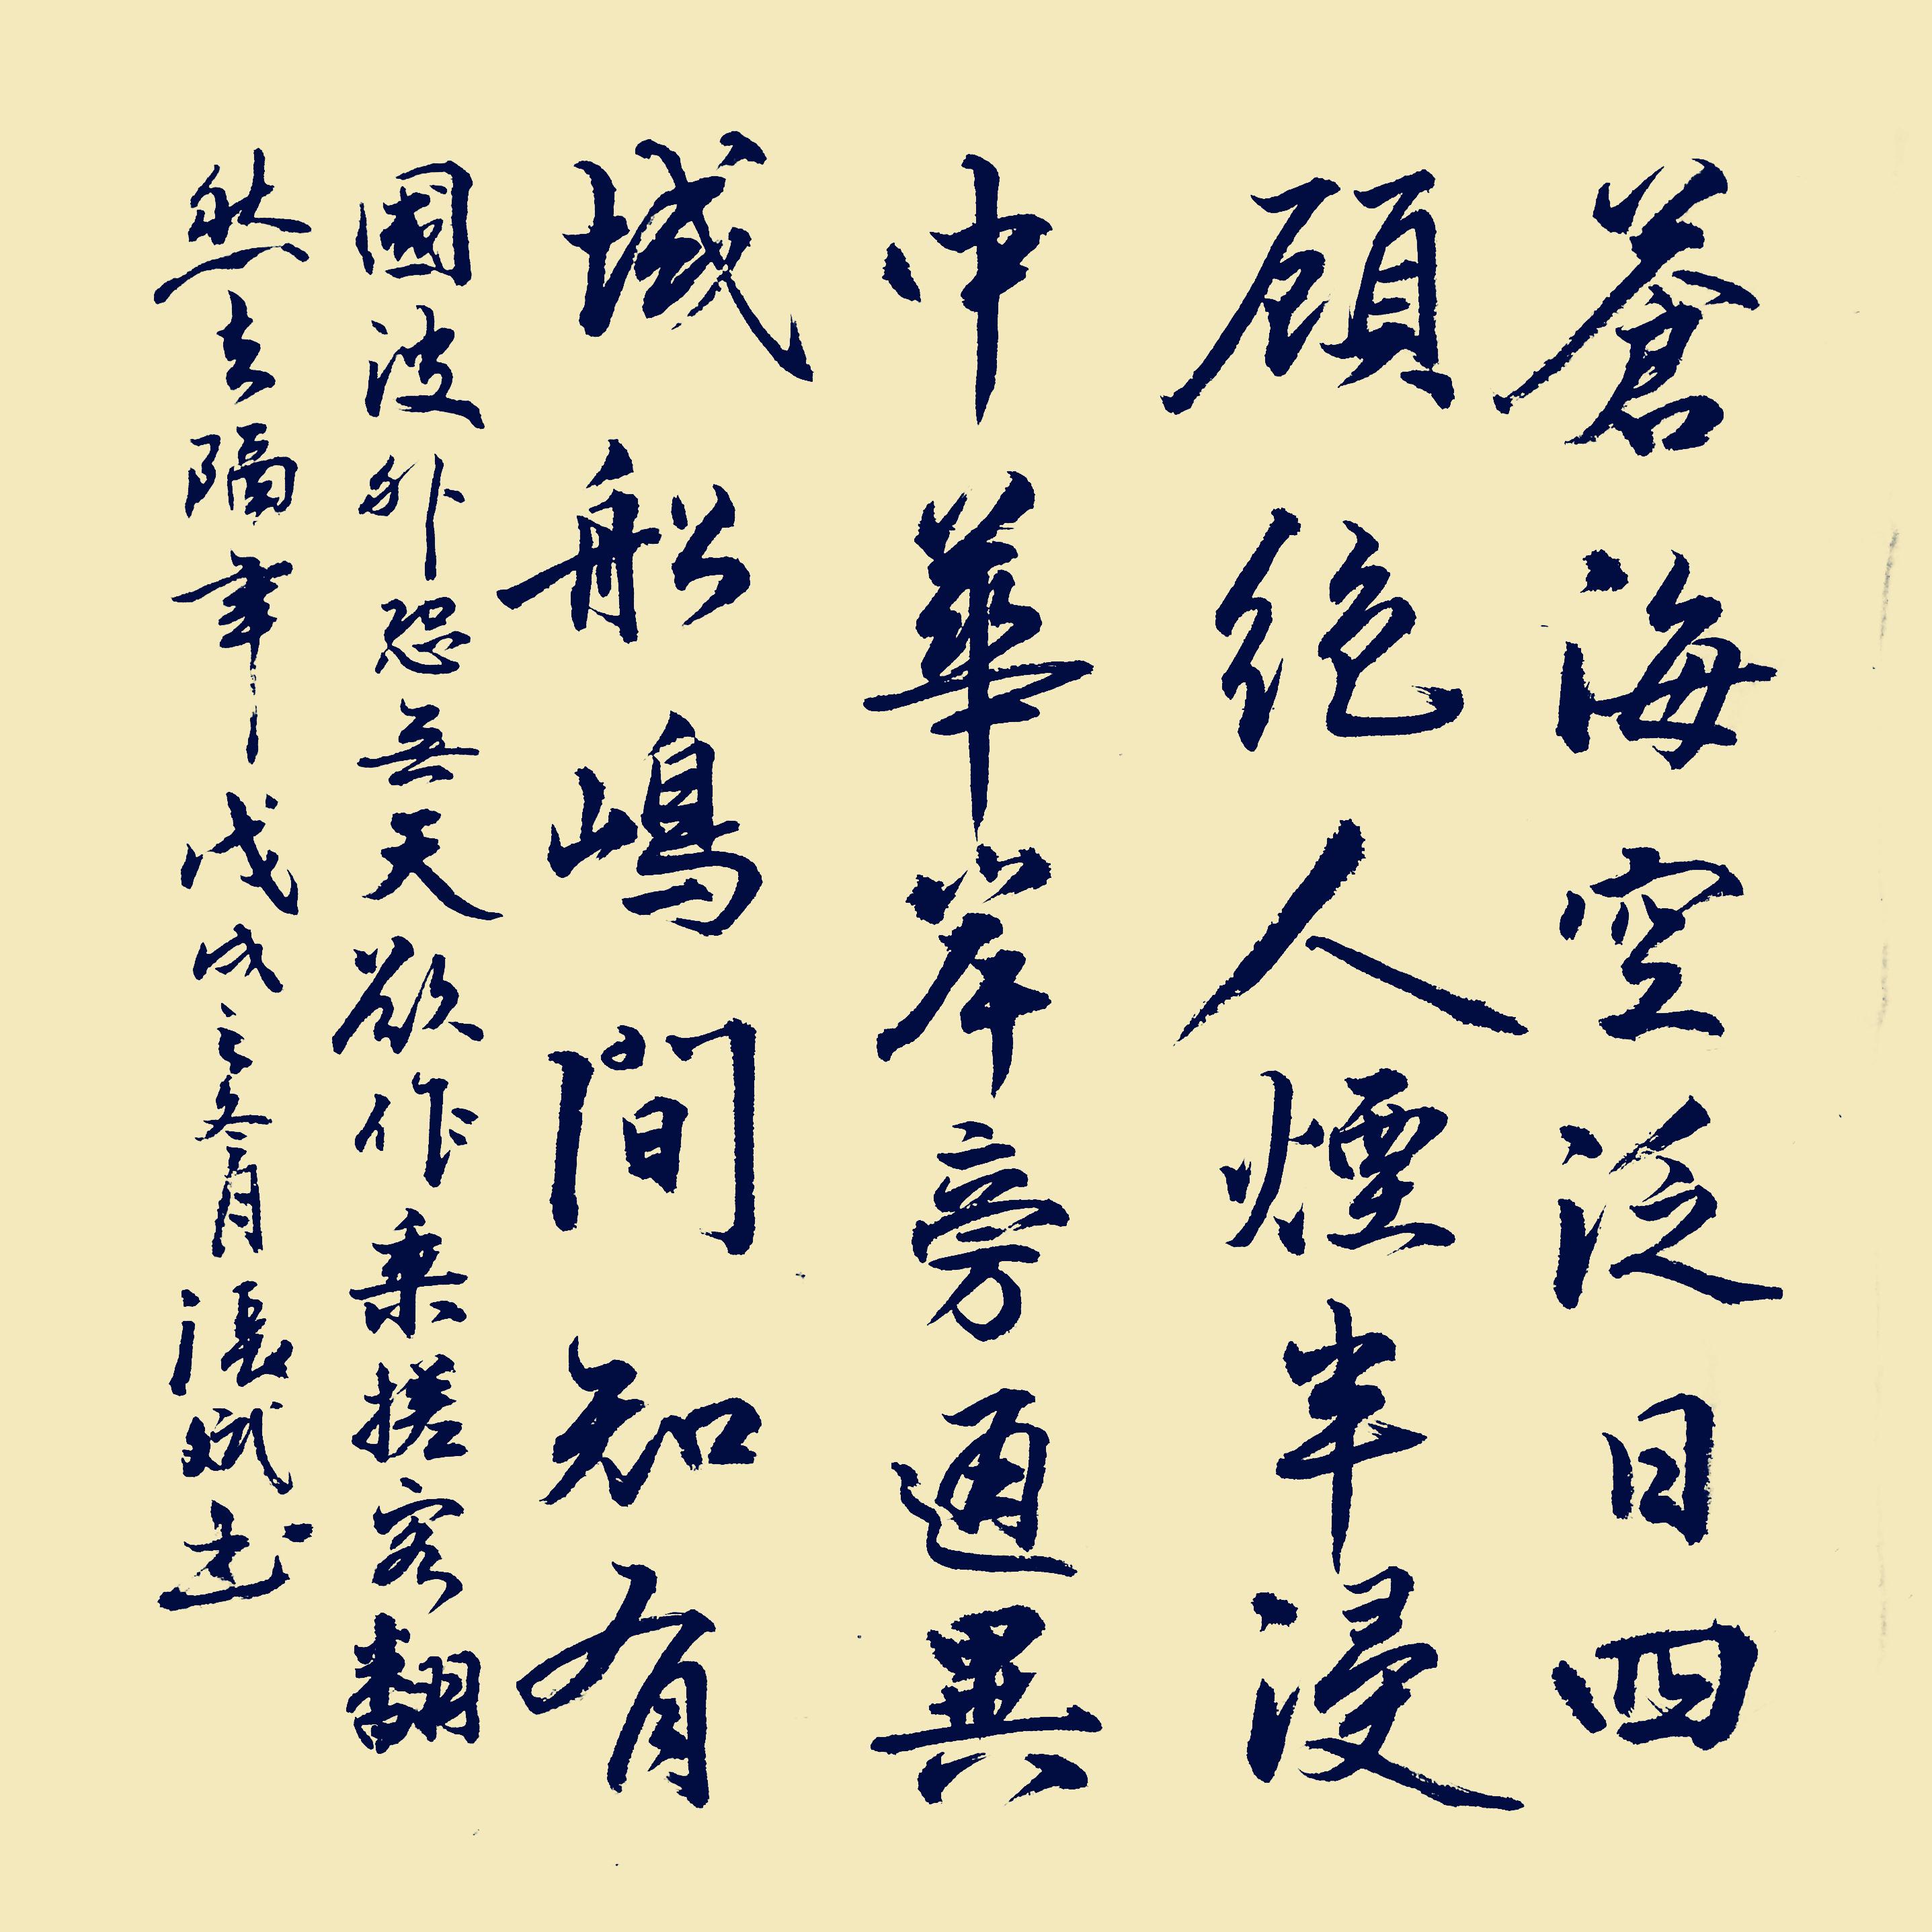 蒼海空泛日四
顧絶人煙半浸
中華岸旁通異
域船嶋間知有
國波外恐無天欲作乘槎客翻
愁去隔年戊戌之夏月張斌書